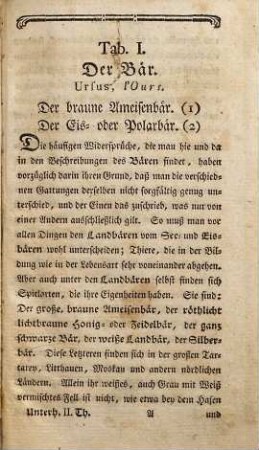 Tab. I.
Der Bär.
Ursus, l'Ours.
Der braune Ameisenbär. (1)
Der Eis- oder Polarbär. (2)
Die häuffigen Widersprüche, die man hie und da
in den Beschreibungen des Bären findet, haben
vorzüglich darin ihren Grund, daß man die verschied-
nen Gattungen derselben nicht sorgfältig genug un-
terschied, und der Einen das zuschrieb, was nur von
einer Andern ausschließlich gilt. So muß man vor
allen Dingen den Landbären vom See- und Eis-
bären wohl unterscheiden; Thiere, die in der Bil-
dung wie in der Lebensart sehr voneinander abgehen.
Aber auch unter den Landbären selbst finden sich
Spielarten, die ihre Eigenheiten haben. Sie sind:
Der große, braune Ameisenbär, der röthlicht
lichtbraune Honig- oder Zeidelbär, der ganz
schwarze Bär, der weiße Landbär, der Silber-
bär. Diese Letzteren finden sich in der großen Tar-
tarey, Litthauen, Moskau und andern nördlichen
Ländern. Allein ihr weißes, auch Grau mit Weiß
vermischtes Fell ist nicht, wie etwa bey dem Hasen
Unterh. II. Th. A und